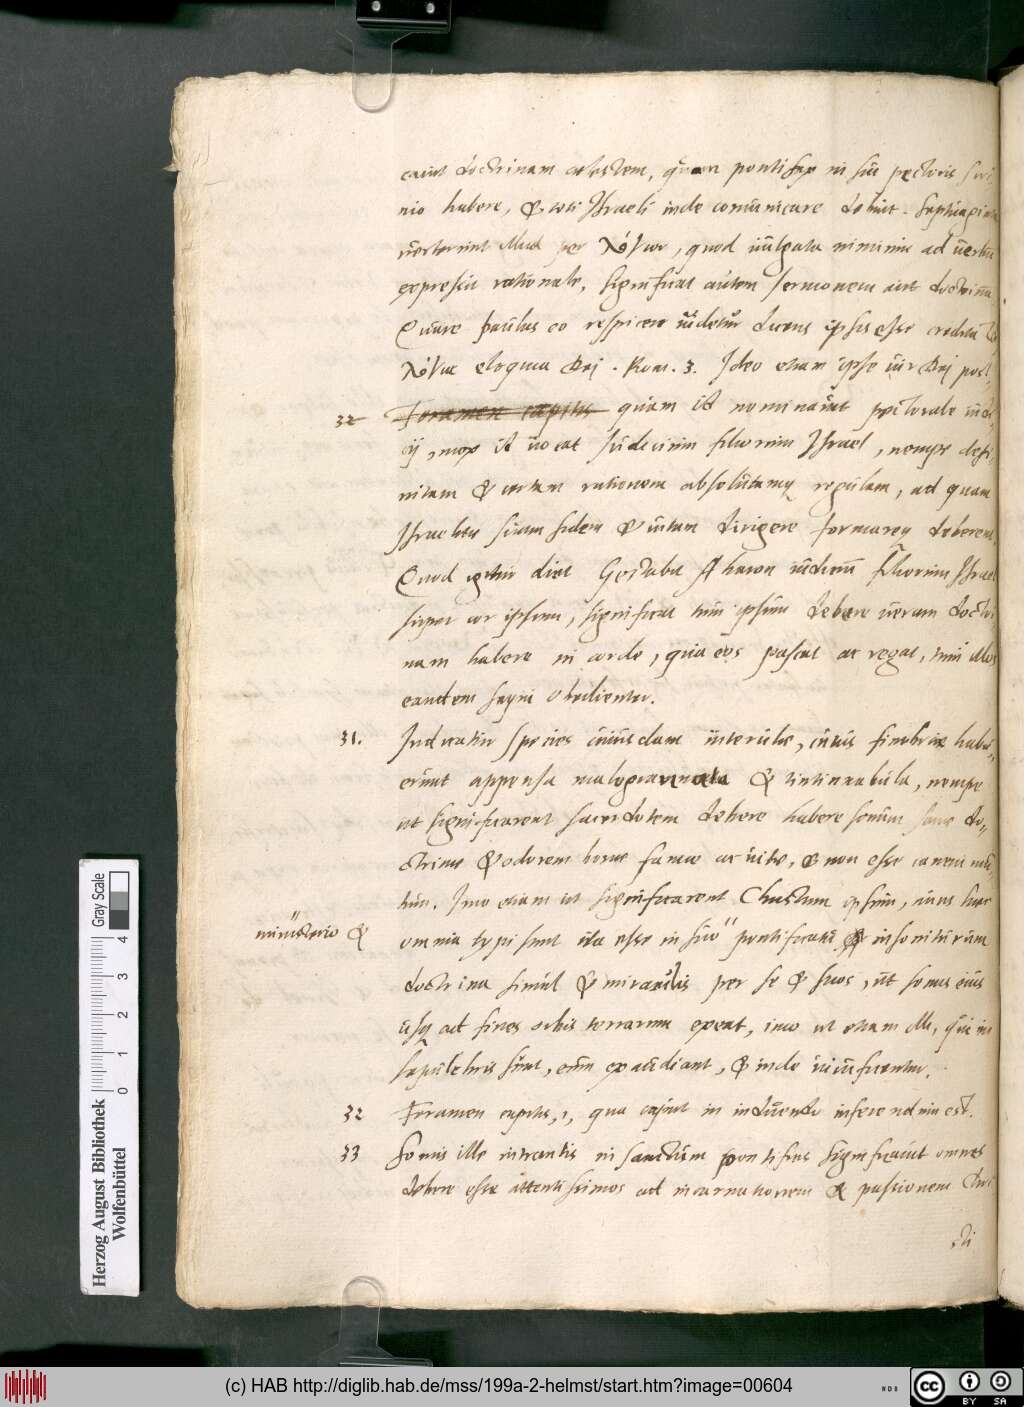 cauit doctrinam coelestem, quam pontifex in sui pectoris scri-
nio habere, & toti Israeli inde comunicare debuit. Septuaginta
verterunt illud per λόγιον, quod vulgata nimiru ad verbum
expressit rationale, significat autem sermonem aut doctrinam
Quare Paulus eo respicere videtur dicens ipsis esse credita
λόγια eloquia Dei. Rom. 3. Ideo etiam ipse vir Dei post-
32 Foramen capitis quam id nominauit pectorale
mox id vocat Judicium filiorum Israel, nempe defi-
nitam & certam rationem absolutamq regulam, ad quam
Israelitae suam fidem & vitam dirigere formareq deberent.
Quod igitur dicit Gestabit Aharon iudicium filiorum Israel
super cor ipsum, significat tum ipsum debere veram doctri
nam habere in corde, qua eos pascat ac regat, tum illos
eandem sequi obedienter.
31. Indicatur species cuiusdam interulae, cuius fimbriae habu-
erunt appensa malogranata & tintinnabula, nempe
ut significarent sacerdotem debere habere sonum sanae do-
ctrinae & odorem bonae famae ac vitae, & non esse canem mu
tum. Imo etiam ut significarent Christum ipsum, cuius haec
ministerio &
omnia typi sunt ita esse in suo pontificatu insoniturum
doctrina simul & miraculis per se & suos, ut sonus eius
usq ad fines orbis terrarum exeat, imo ut etiam illi, qui in
sepulchris sunt, eum exaudiant, & inde viuificentur.
32 Foramen capitis, i, qua caput in induendo inferendum est.
33 Sonus ille intrantis in sanctum pontificis significauit omnes
debere esse attentissimos ad incarnationem & passionem Chri
sti
Herzog August Bibliothek
Wolfenbüttel
Gray Scale
0 1 2 3 4
(c) HAB http://diglib.hab.de/mss/199a-2-helmst/start.htm?image=00604
cc BY SA